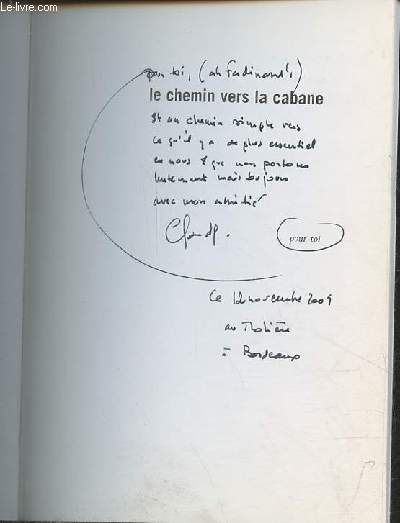 Le-livre.com
pour toi, (ah Ferdinand !)
le chemin vers la cabane
Et un chemin simple vers
ce qu'il y a de plus essentiel
en nous & que nous portons
lentement mais toujours
avec mon amitié
pour toi
Ce 12 novembre 2009
au Molière
à Bordeaux